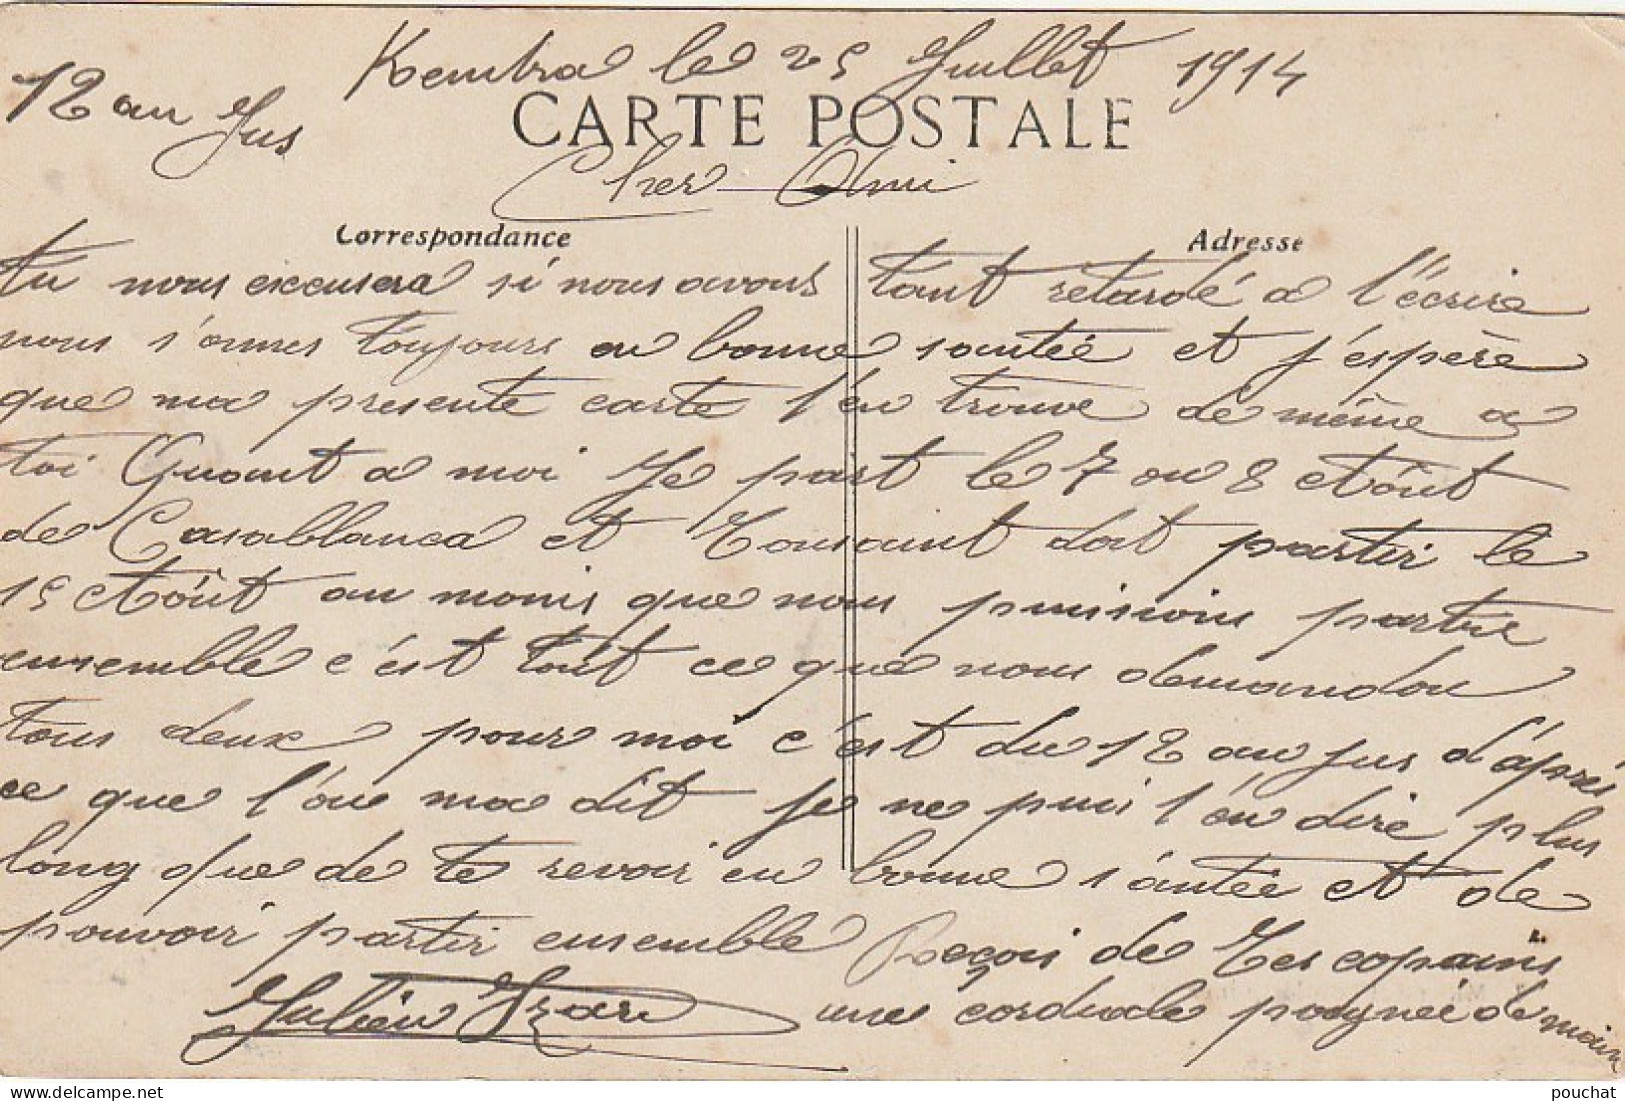 Kenitra le 25 Juillet 1914
12 au Jus
CARTE POSTALE
Cher Ami
Correspondance
Adresse
tu nous excusera si nous avons tant retardé a l'écrire
nous s'omes toujours en bonne santée et j'espère
que ma présente carte t'en trouve de même a
toi Quant a moi Je part le 7 ou 8 Aôut
de Casablanca et Tousaint doit partir le
15 Aôut au moins que nous puission partir
ensemble c'est tout ce que nous demandon
tous deux pour moi c'est du 12 au jus d'après
ce que l'on ma dit Je ne pui t'en dire plus
long que de te revoir en bonne s'antée et de
pouvoir partir ensemble
Reçois de Tes copains
une cordiale poignée de main
Julien
pouchat